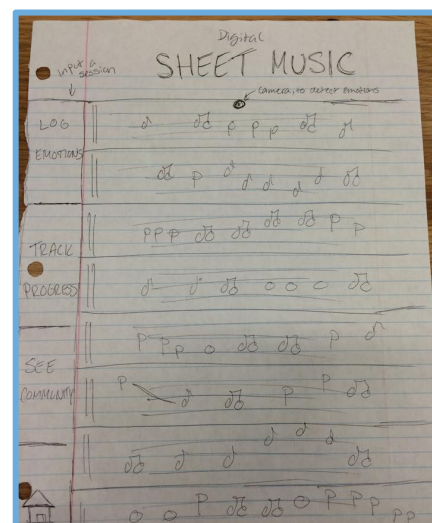 Digital
SHEET MUSIC
input a
session
Camera to detect emotions
LOG
EMOTIONS
TRACK
PROGRESS
SEE
COMMUNITY